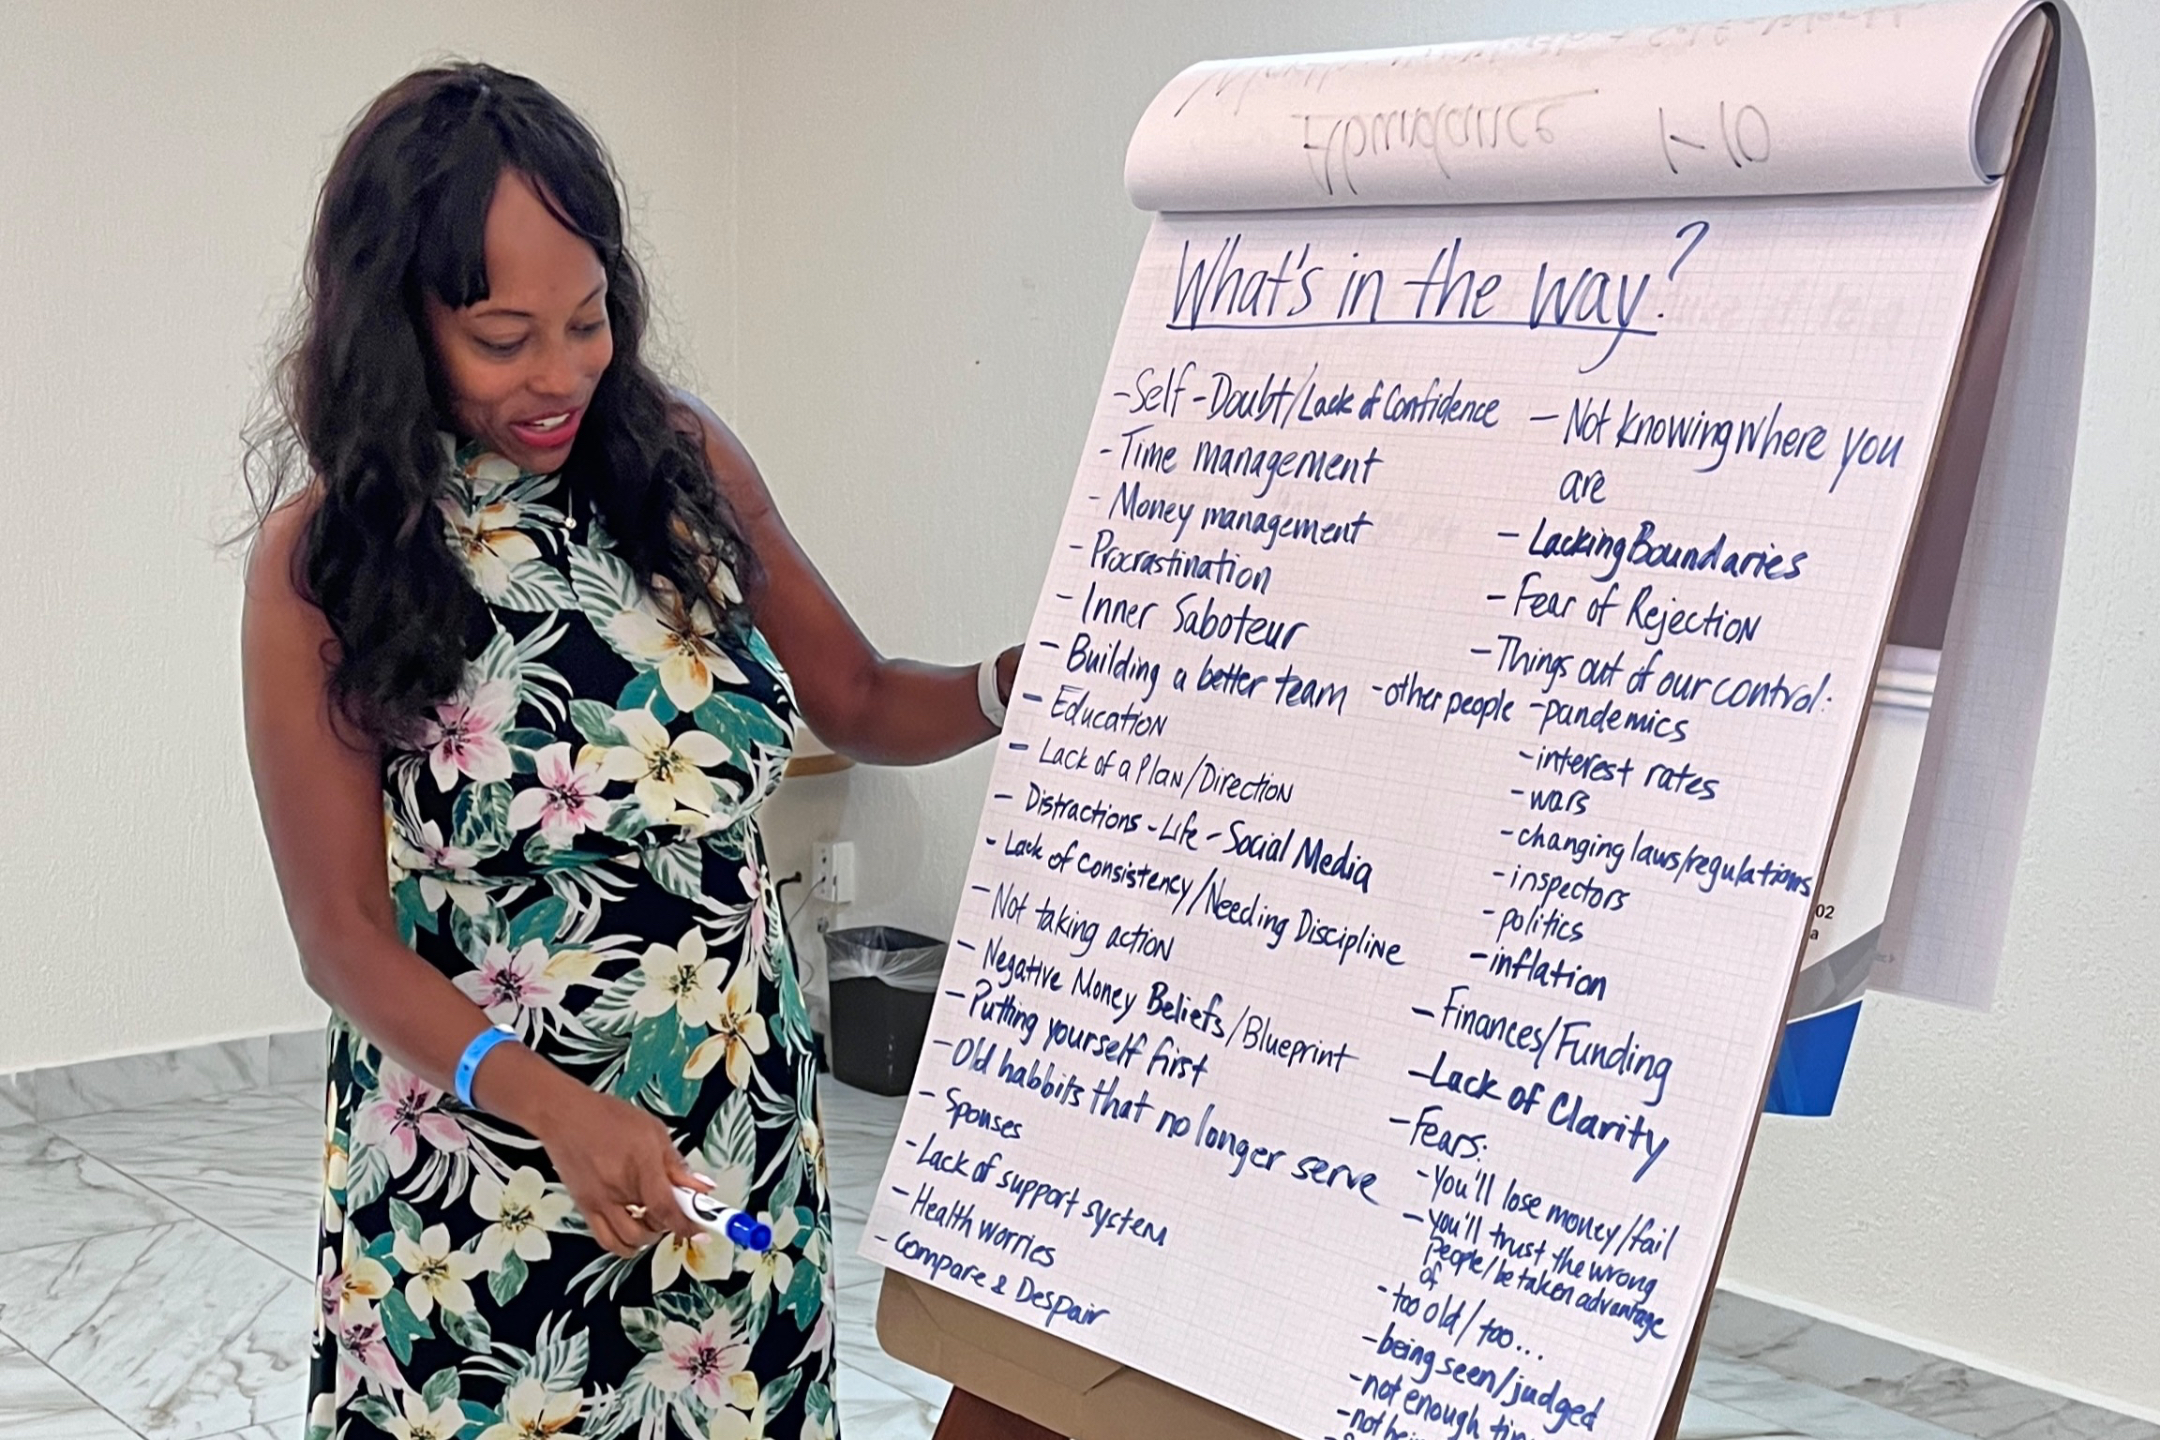 Abundance 1-10
What's in the way?
- Self-Doubt/Lack of Confidence
- Time management
- Money management
- Procrastination
- Inner Saboteur
- Building a better team - other people
- Education
- Lack of a Plan/Direction
- Distractions - Life - Social Media
- Lack of consistency/Needing Discipline
- Not taking action
- Negative Money Beliefs/Blueprint
- Putting yourself first
- Old habbits that no longer serve
- Spouses
- Lack of support system
- Health worries
- Compare & Despair
- Not knowing where you
are
- Lacking Boundaries
- Fear of Rejection
- Things out of our control:
- pandemics
- interest rates
- wars
- changing laws/regulations
- inspectors
- politics
- inflation
- Finances/Funding
- Lack of Clarity
- Fears:
- You'll lose money/fail
- You'll trust the wrong
people/be taken advantage
of
- too old/too...
- being seen/judged
- not enough
- not
02
a